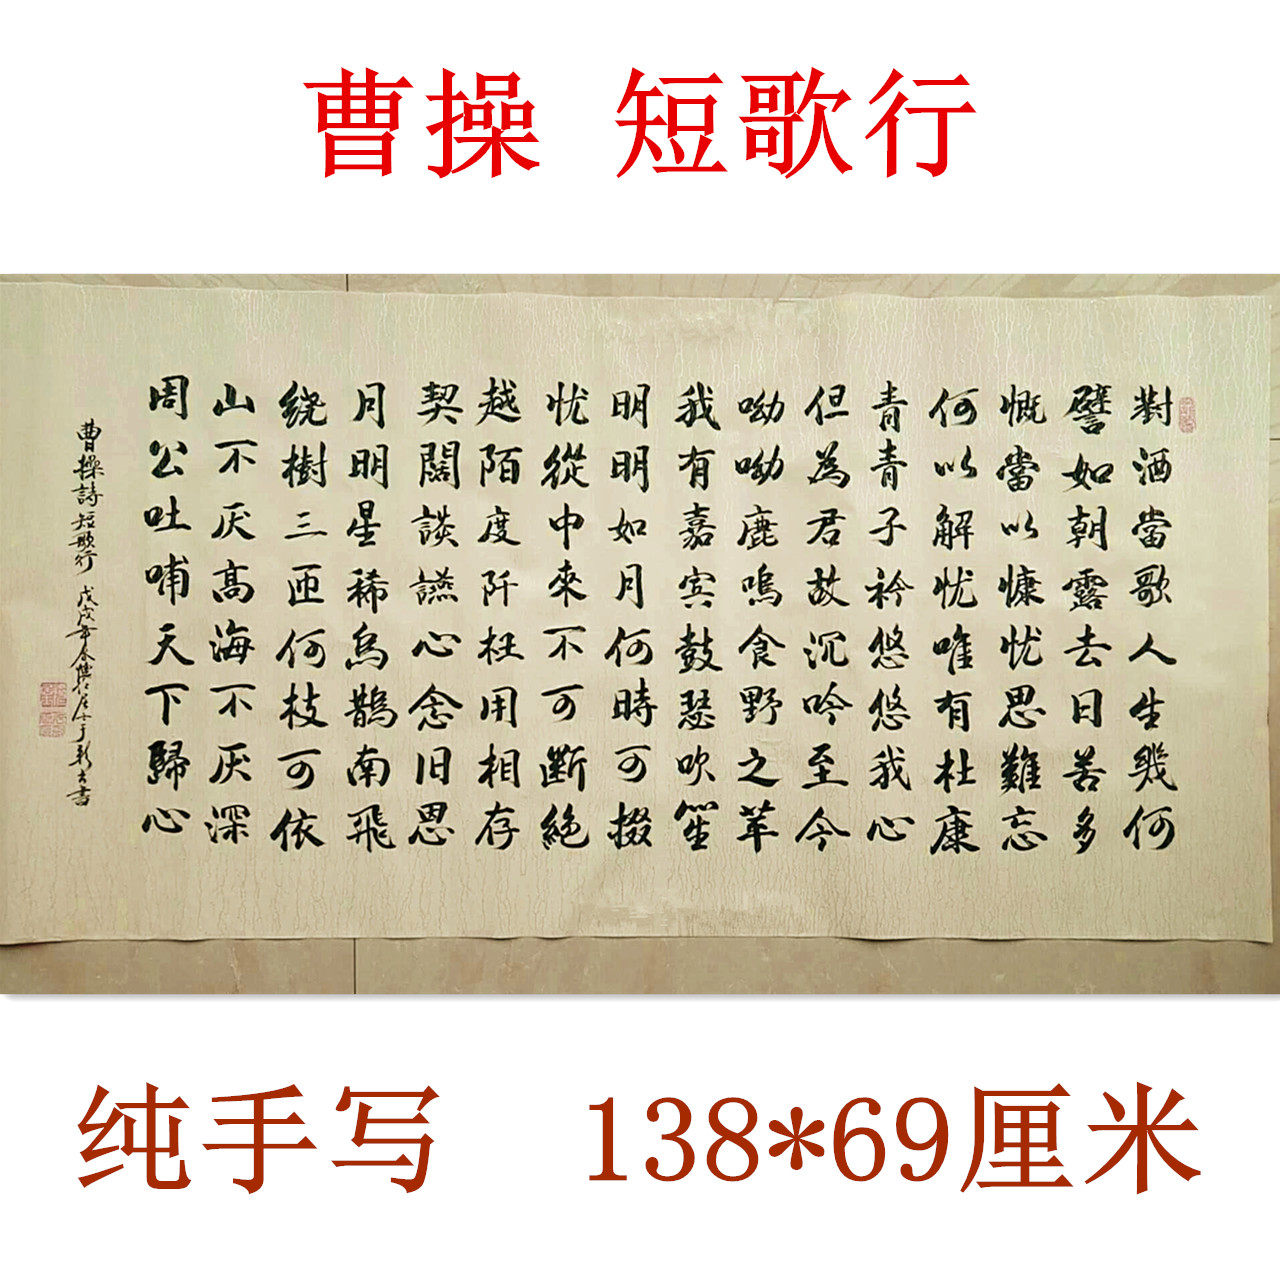 曹操 短歌行
對酒當歌人生幾何
譬如朝露去日苦多
慨當以慷忧思難忘
何以解忧唯有杜康
青青子衿悠悠我心
但為君故沉吟至今
呦呦鹿鳴食野之苹
我有嘉宾鼓瑟吹笙
明明如月何時可掇
忧從中來不可斷絕
越陌度阡枉用相存
契闊談讌心念旧恩
月明星稀烏鵲南飛
绕樹三匝何枝可依
山不厌高海不厌深
周公吐哺天下歸心
曹操詩短歌行 戊戌年春 書
纯手写 138*69厘米